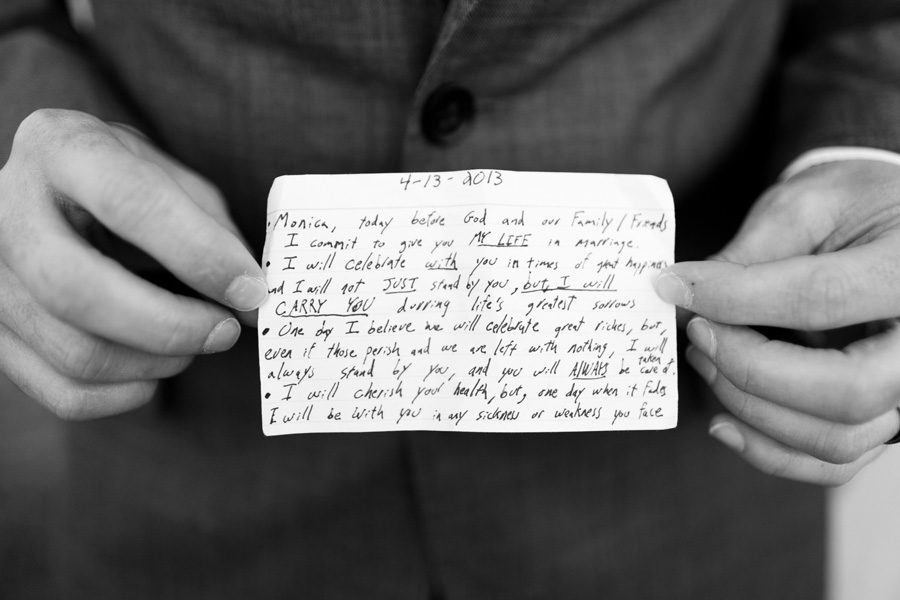 4-13-2013
• Monica, today before God and our Family / Friends
I commit to give you MY LIFE in marriage.
• I will celebrate with you in times of great happiness
and I will not JUST stand by you, but, I will
CARRY YOU durring life's greatest sorrows
• One day I believe we will celebrate great riches, but,
even if those perish and we are left with nothing, I will
always stand by you, and you will ALWAYS be taken care of.
• I will cherish your health, but, one day when it fades
I will be with you in any sickness or weakness you face